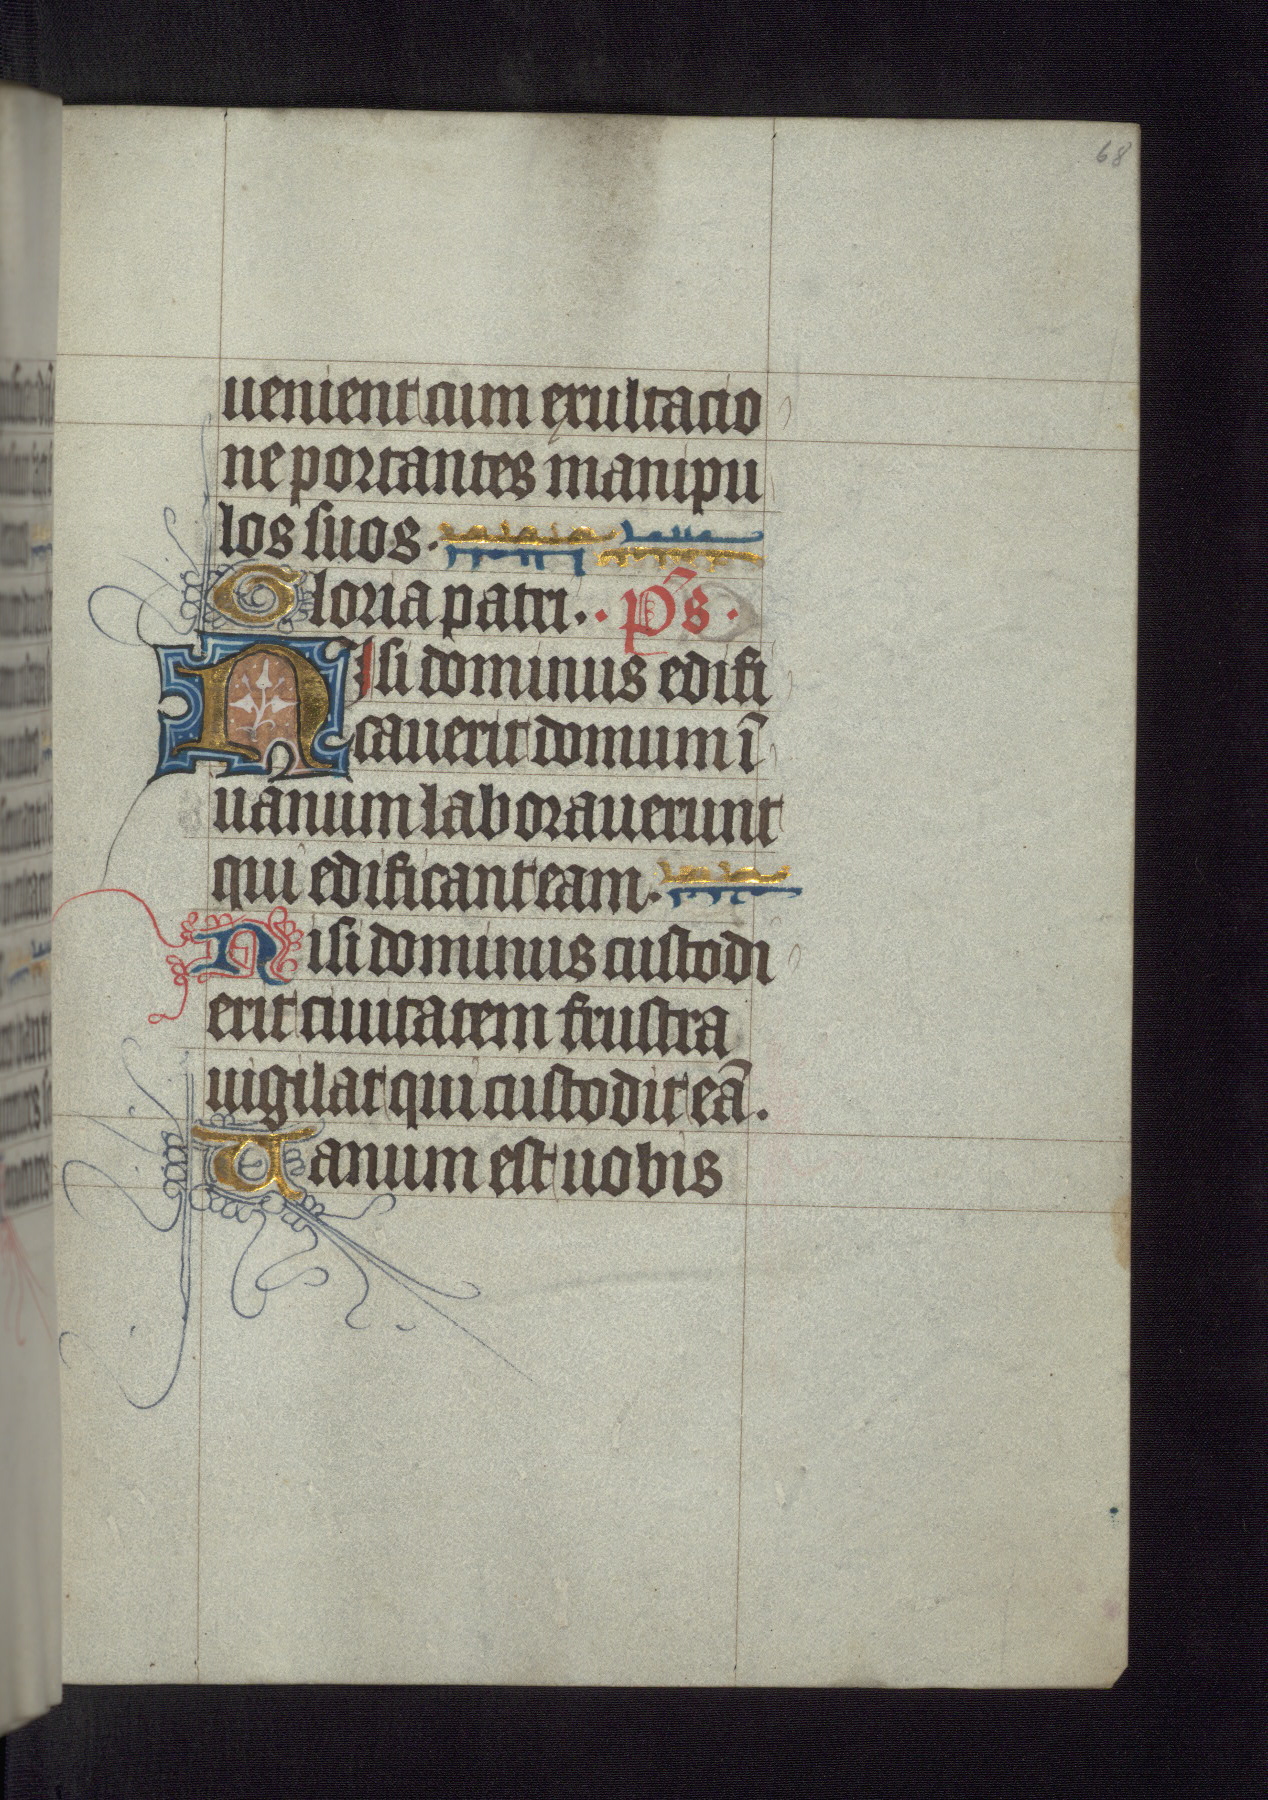 68
uenient cum exultacio
ne portantes manipu
los suos.
Gloria patri. . ps .
NIsi dominus edifi
cauerit domum ī
uanum laborauerunt
qui edificant eam.
Nisi dominus custodi
erit ciuitatem frustra
uigilat qui custodit eā.
Uanum est uobis